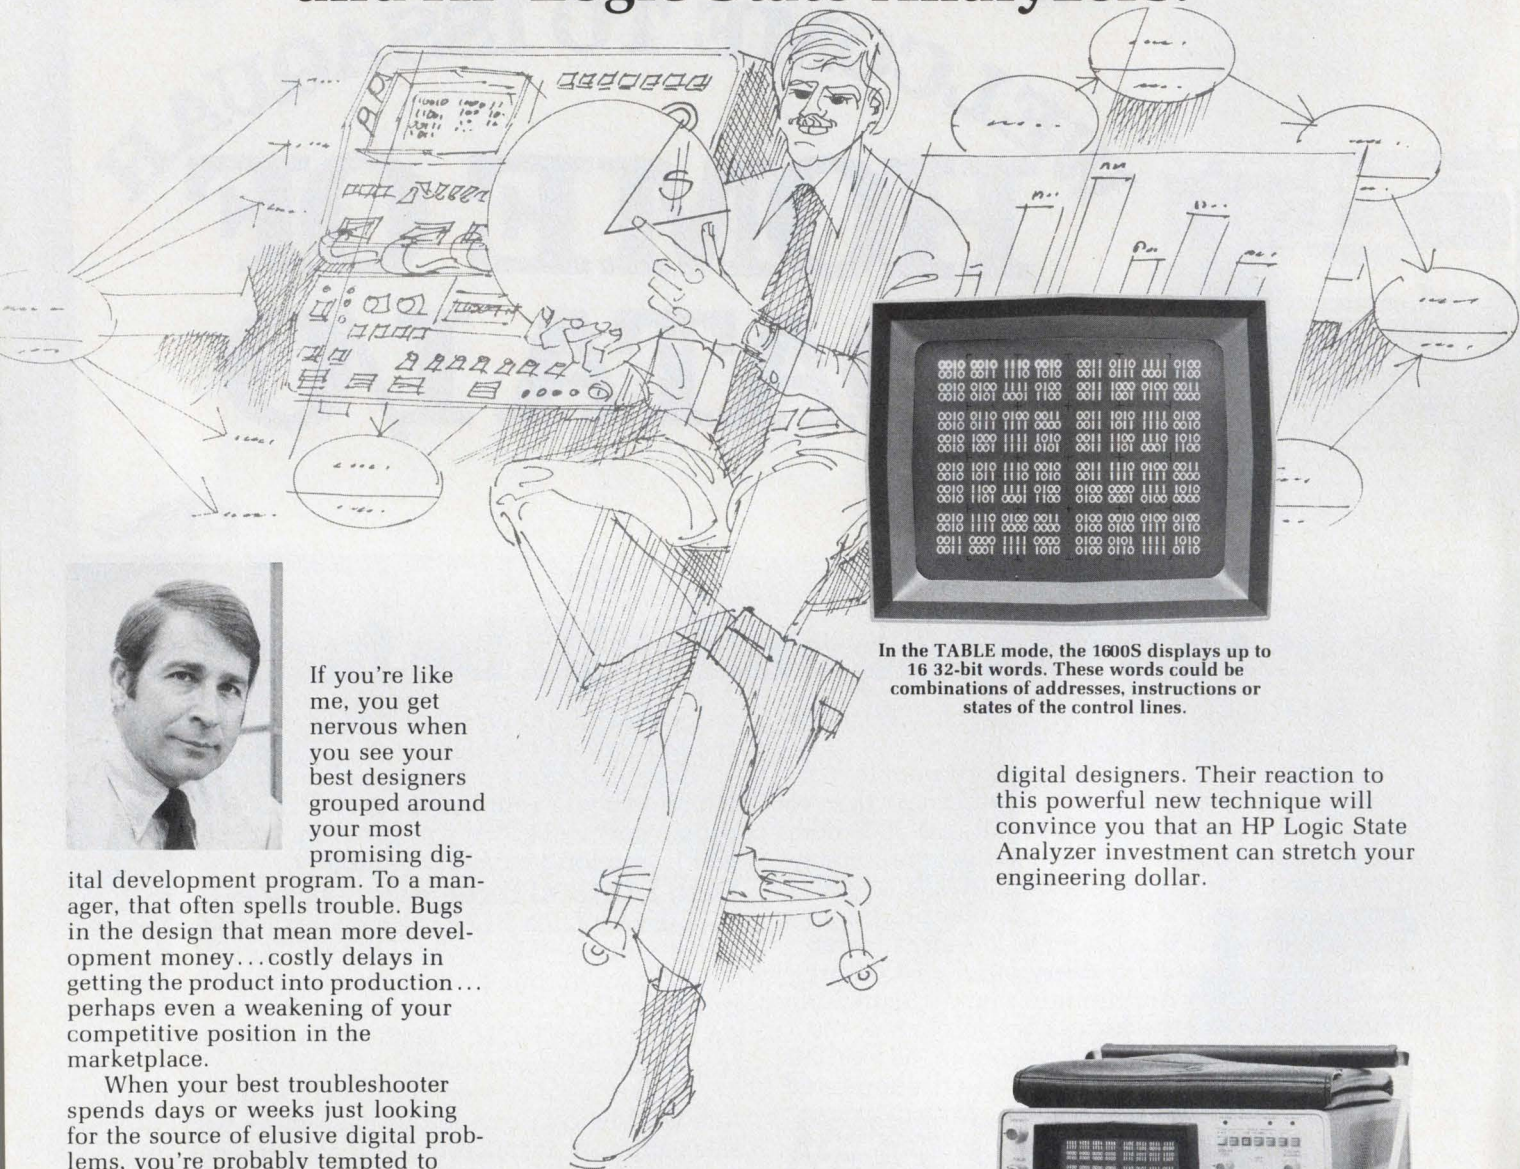 and HP Logic State Analyzers.
$
In the TABLE mode, the 1600S displays up to
16 32-bit words. These words could be
combinations of addresses, instructions or
states of the control lines.
If you're like
me, you get
nervous when
you see your
best designers
grouped around
your most
promising dig-
ital development program. To a man-
ager, that often spells trouble. Bugs
in the design that mean more devel-
opment money...costly delays in
getting the product into production...
perhaps even a weakening of your
competitive position in the
marketplace.
When your best troubleshooter
spends days or weeks just looking
for the source of elusive digital prob-
lems, you're probably tempted to
digital designers. Their reaction to
this powerful new technique will
convince you that an HP Logic State
Analyzer investment can stretch your
engineering dollar.